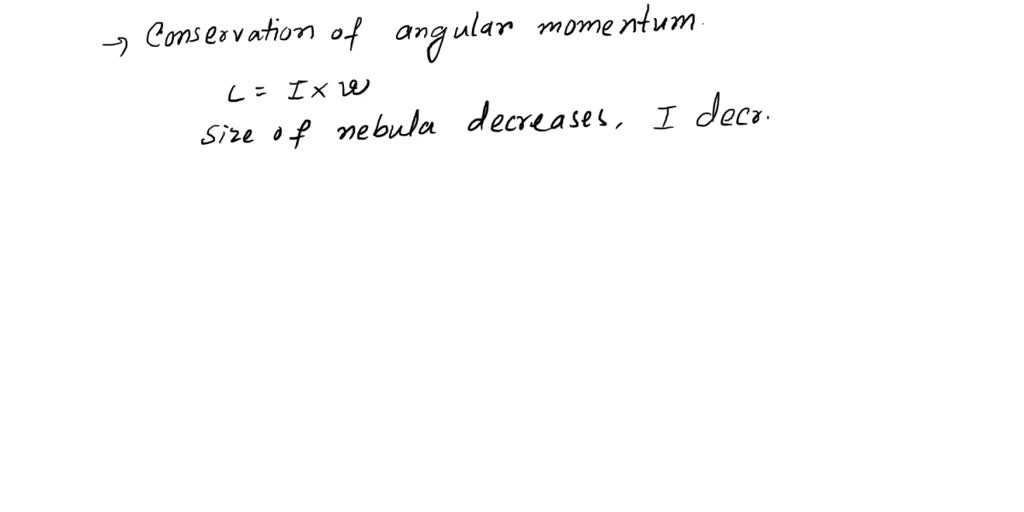 → Conservation of angular momentum.
L = I × ω
Size of nebula decreases, I decr.